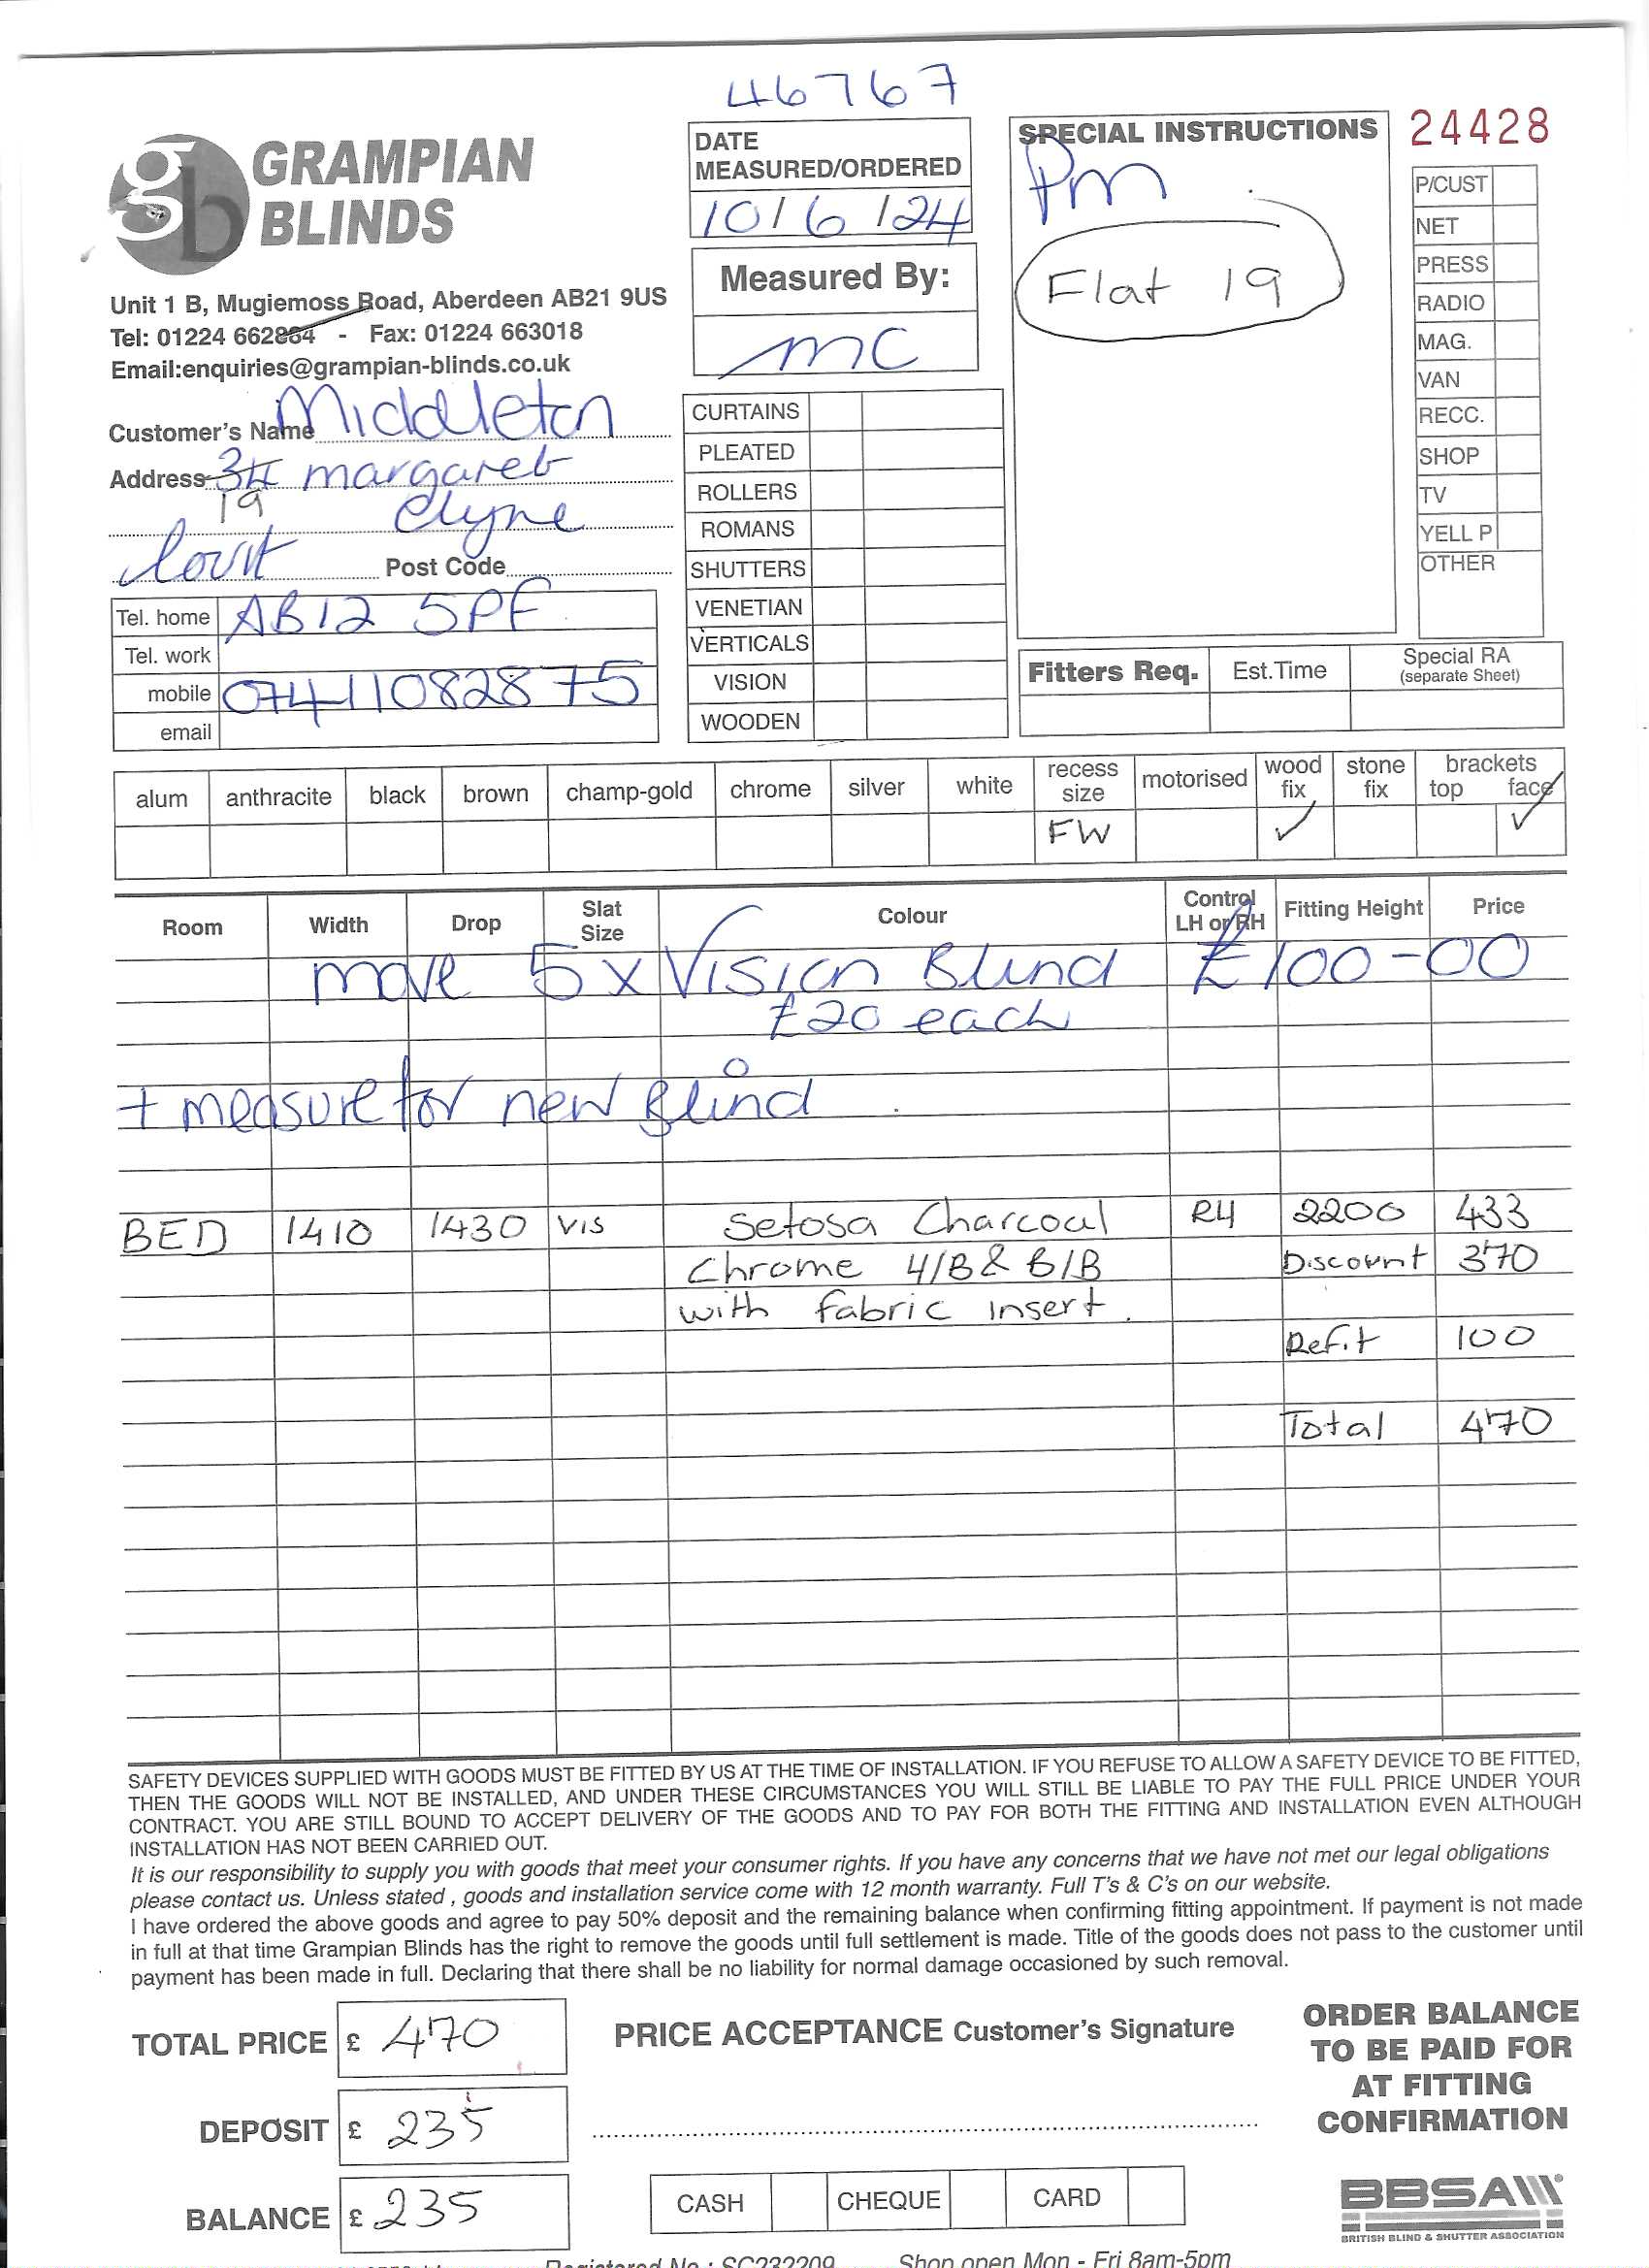 46767
GRAMPIAN
BLINDS
Unit 1 B, Mugiemoss Road, Aberdeen AB21 9US
Tel: 01224 662864 - Fax: 01224 663018
Email:enquiries@grampian-blinds.co.uk
DATE
MEASURED/ORDERED
10/6/24
Measured By:
MC
SPECIAL INSTRUCTIONS
Pm
Flat 19
24428
P/CUST
NET
PRESS
RADIO
MAG.
VAN
RECC.
SHOP
TV
YELL P
OTHER
Customer's Name Middleton
Address 34 margaret
19 Clyne
Court Post Code
Tel. home AB12 5PF
Tel. work
mobile 07411082875
email
CURTAINS
PLEATED
ROLLERS
ROMANS
SHUTTERS
VENETIAN
VERTICALS
VISION
WOODEN
Fitters Req. Est.Time Special RA
(separate Sheet)
alum anthracite black brown champ-gold chrome silver white recess size motorised wood fix stone fix brackets top face
FW ✓ ✓
Room Width Drop Slat Size Colour Control LH or RH Fitting Height Price
move 5 x Vision Blind £100-00
£20 each
+ measure for new Blind
BED 1410 1430 VIS Setosa Charcoal RH 2200 433
Chrome H/B & B/B Discount 370
with fabric insert.
Refit 100
Total 470
SAFETY DEVICES SUPPLIED WITH GOODS MUST BE FITTED BY US AT THE TIME OF INSTALLATION. IF YOU REFUSE TO ALLOW A SAFETY DEVICE TO BE FITTED,
THEN THE GOODS WILL NOT BE INSTALLED, AND UNDER THESE CIRCUMSTANCES YOU WILL STILL BE LIABLE TO PAY THE FULL PRICE UNDER YOUR
CONTRACT. YOU ARE STILL BOUND TO ACCEPT DELIVERY OF THE GOODS AND TO PAY FOR BOTH THE FITTING AND INSTALLATION EVEN ALTHOUGH
INSTALLATION HAS NOT BEEN CARRIED OUT.
It is our responsibility to supply you with goods that meet your consumer rights. If you have any concerns that we have not met our legal obligations
please contact us. Unless stated , goods and installation service come with 12 month warranty. Full T's & C's on our website.
I have ordered the above goods and agree to pay 50% deposit and the remaining balance when confirming fitting appointment. If payment is not made
in full at that time Grampian Blinds has the right to remove the goods until full settlement is made. Title of the goods does not pass to the customer until
payment has been made in full. Declaring that there shall be no liability for normal damage occasioned by such removal.
TOTAL PRICE £ 470
DEPOSIT £ 235
BALANCE £ 235
PRICE ACCEPTANCE Customer's Signature
CASH CHEQUE CARD
ORDER BALANCE
TO BE PAID FOR
AT FITTING
CONFIRMATION
BBSA
BRITISH BLIND & SHUTTER ASSOCIATION
Registered No.: SC232209 Shop open Mon - Fri 8am-5pm